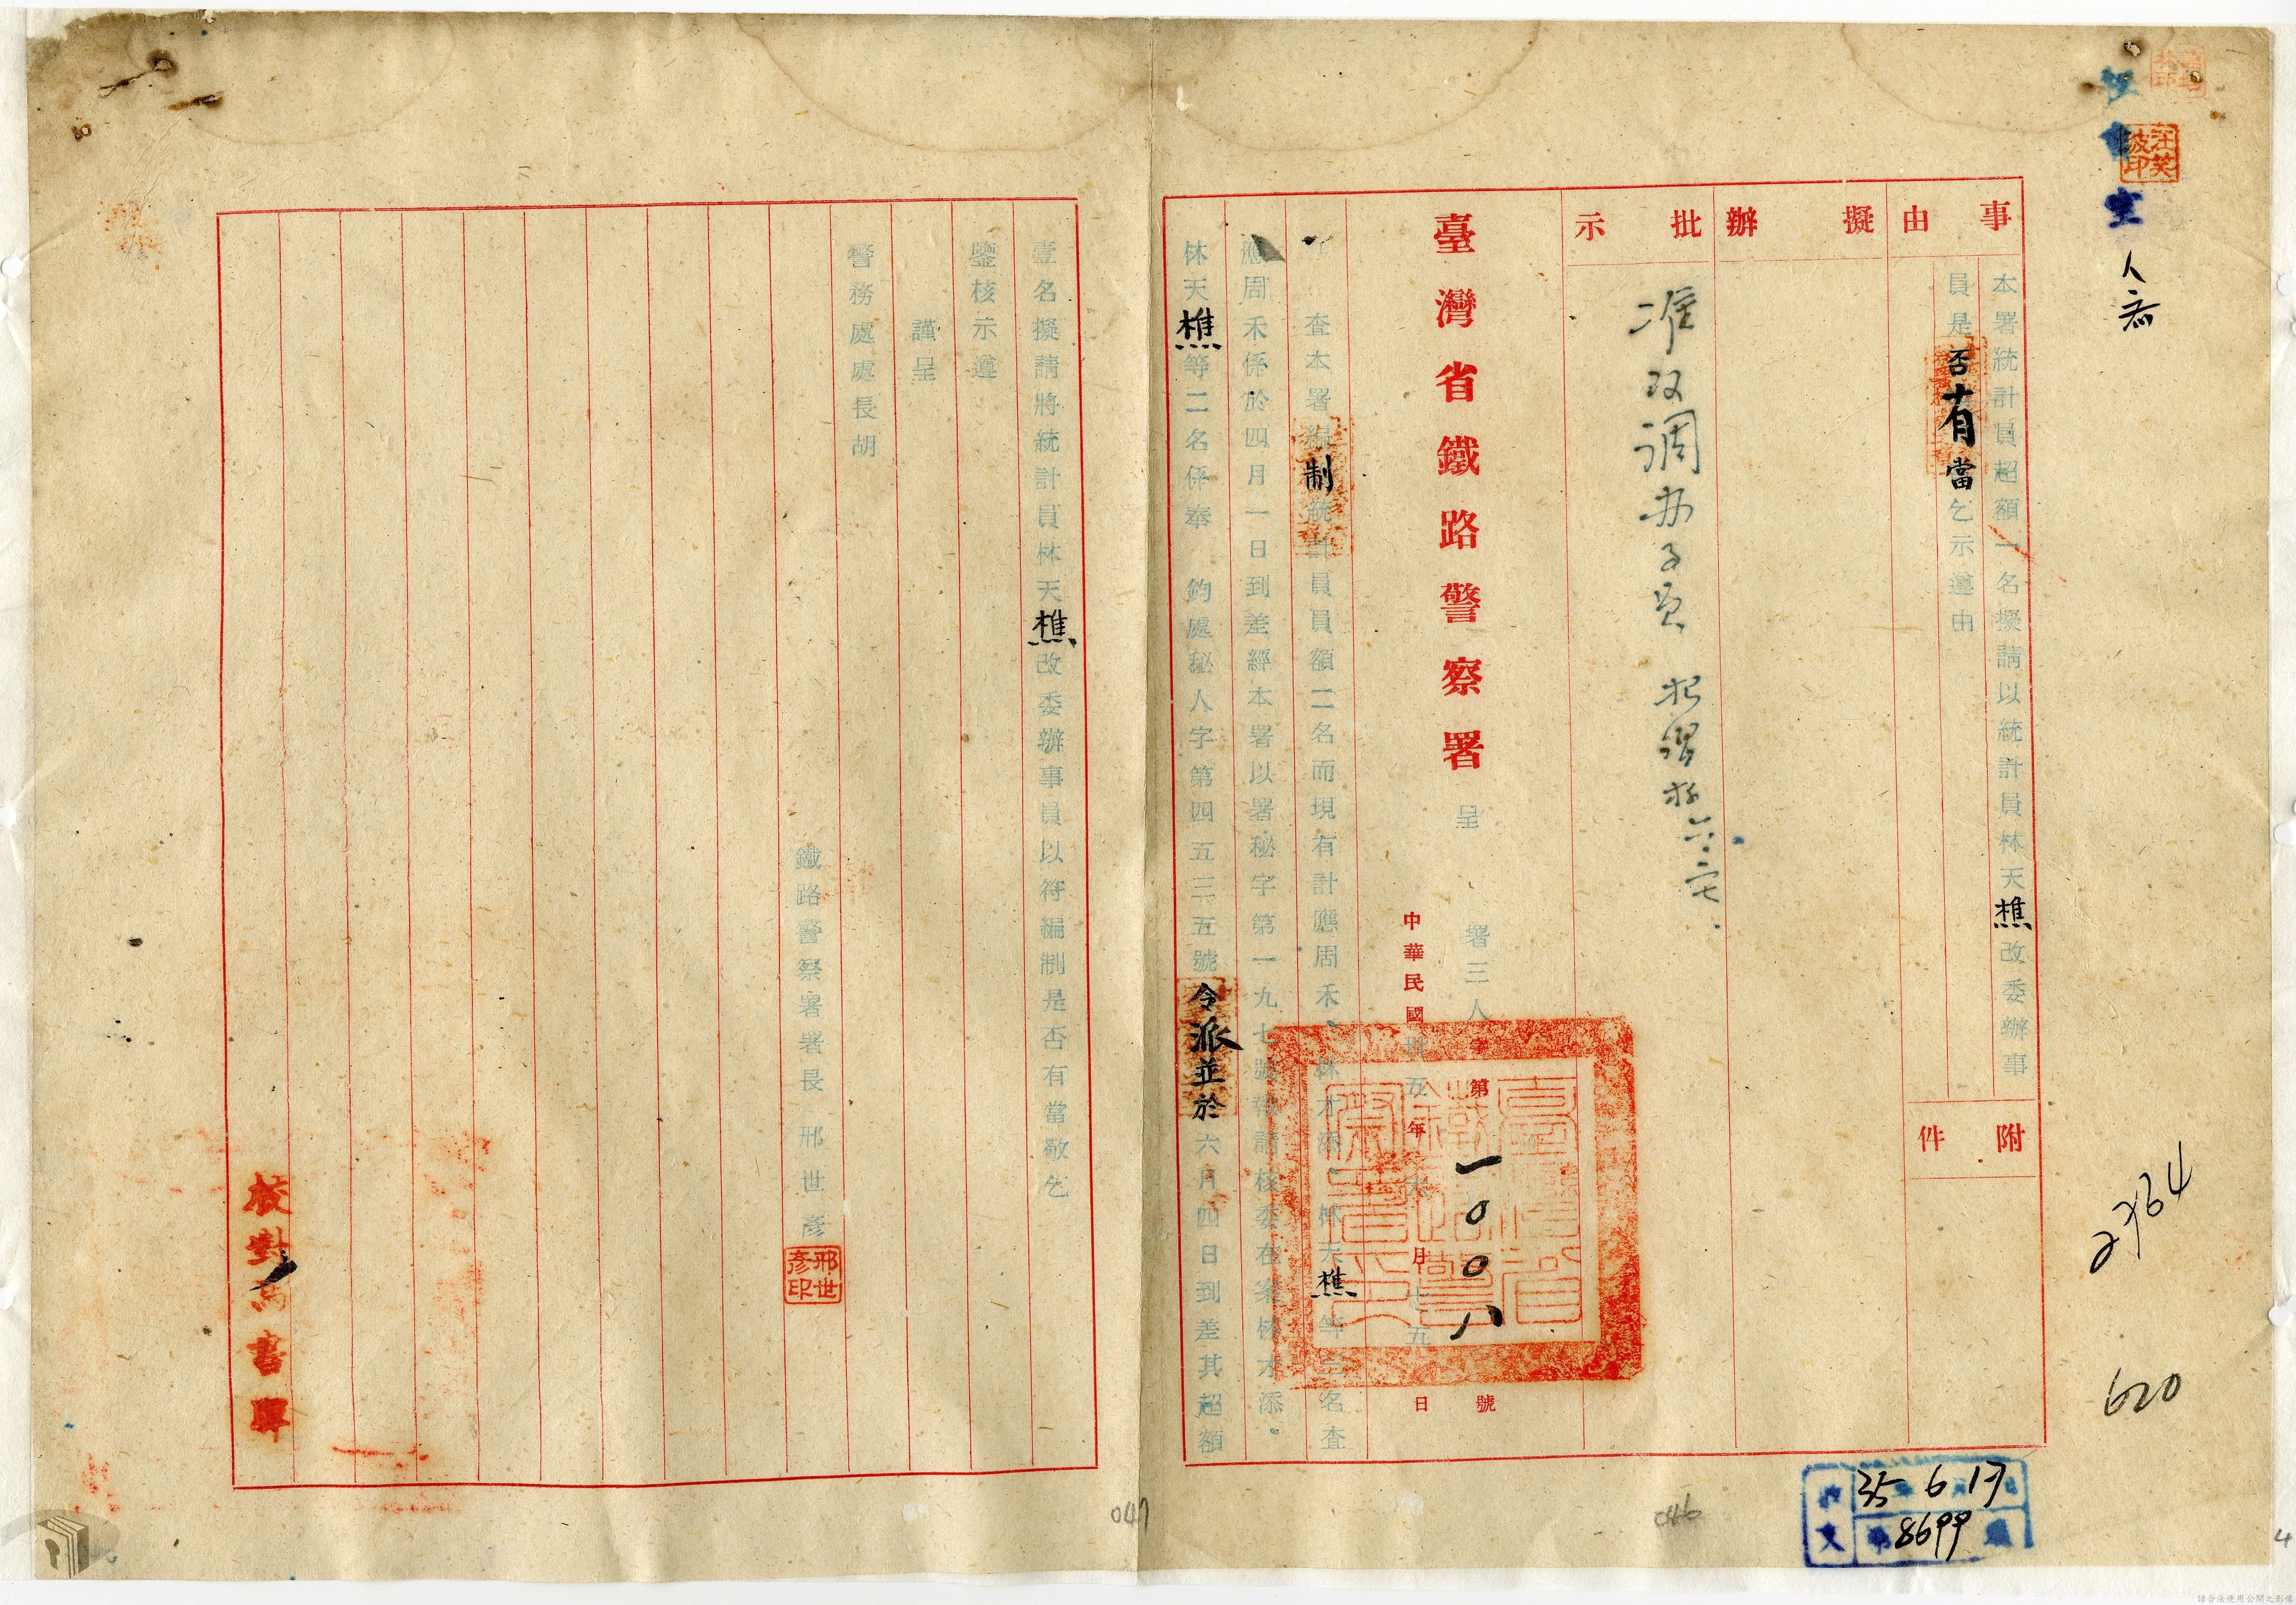 秘書室
人齋
汪芙波印
事由
本署統計員超額一名擬請以統計員林天樵改委辦事
員是否有當乞示遵由
附件
擬辦
批示
准改調办事員
六、二七
臺灣省鐵路警察署 呈
署三人字第一〇〇八號
中華民國卅五年六月十五日
查本署編制統計員員額二名而現有計應周禾、林才添、林天樵等三名查
應周禾係於四月一日到差經本署以署秘字第一九七號報請核委在案林才添、
林天樵等二名係奉 鈞處秘人字第四五三五號令派並於六月四日到差其超額
2764
620
收文 35 6 17
第8699號
046
壹名擬請將統計員林天樵改委辦事員以符編制是否有當敬乞
鑒核示遵
謹呈
警務處處長胡
鐵路警察署署長 邢世彥
邢世彥印
校對馮書聲
047
4
請合法使用公開之影像